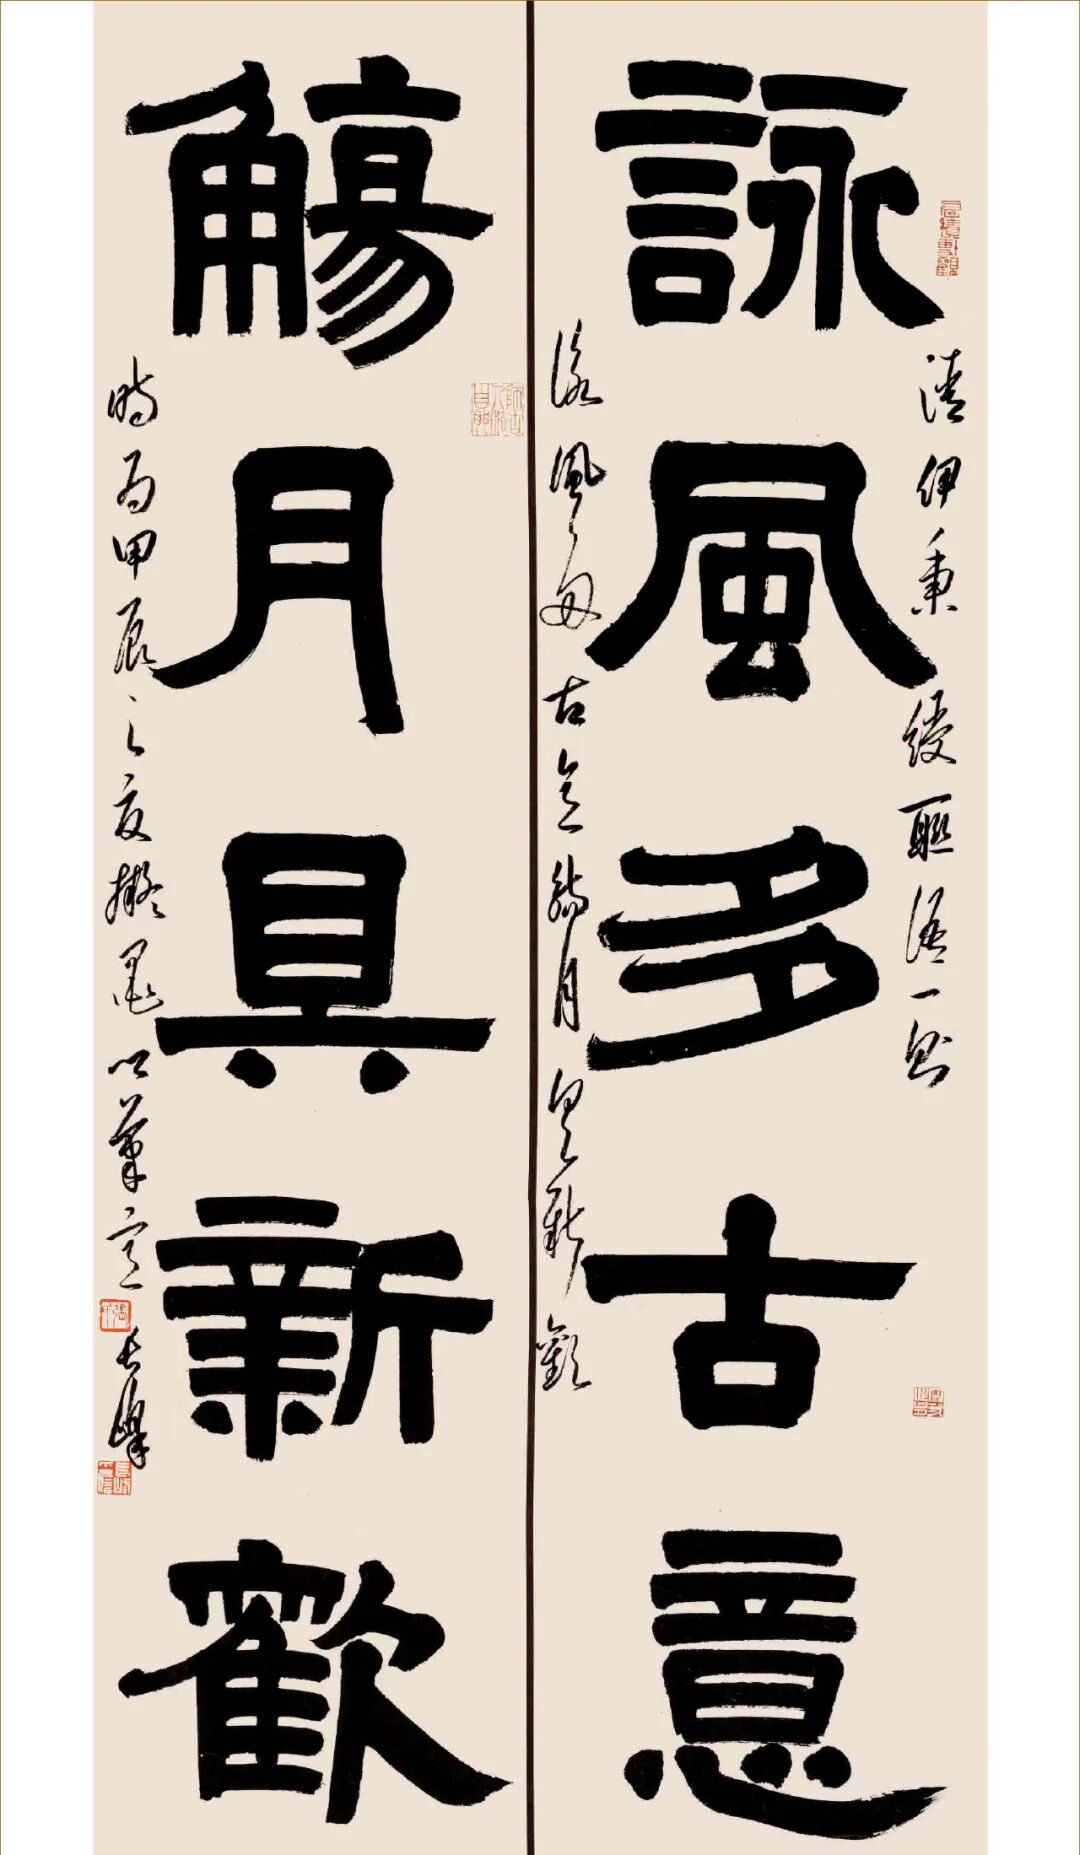 詠風多古意
清伊秉綬聯語一則
詠風多古意觴月具新歡
觴月具新歡
時為甲辰之夏擬墨
長峰